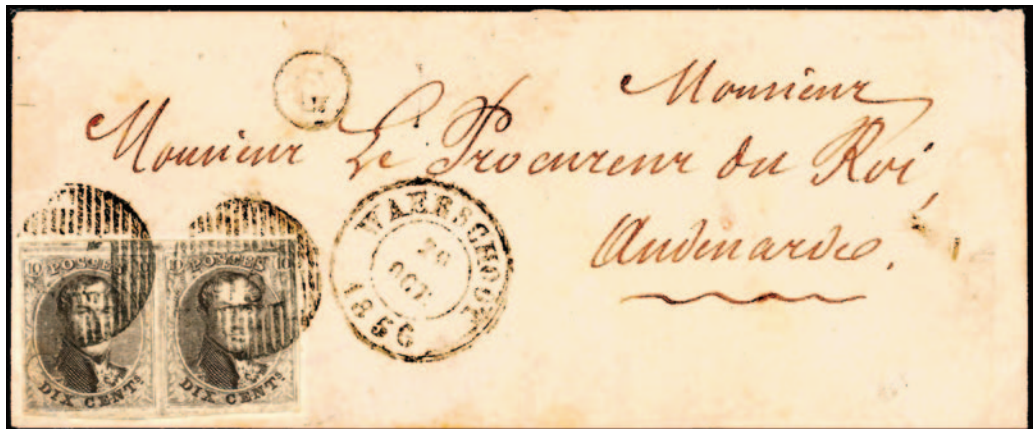 Monsieur
Monsieur Le Procureur du Roi,
Audenarde.
WAERSCHOOT
OCT
1856
10 POSTES
DIX CENTS
POSTES 10
DIX CENTS